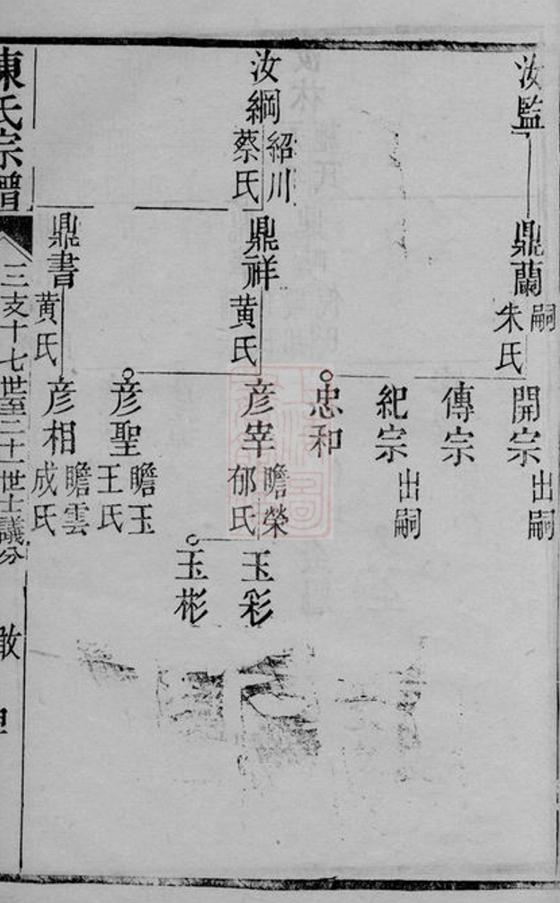 汝監
鼎蘭
嗣
朱氏
開宗
出嗣
傳宗
紀宗
出嗣
忠和
汝綱
紹川
蔡氏
鼎祥
黄氏
彦宰
瞻榮
郁氏
玉彩
玉彬
彦聖
瞻玉
王氏
鼎書
黄氏
彦相
瞻雲
成氏
陳氏宗譜
三支十七世至二十一世士議分
敢